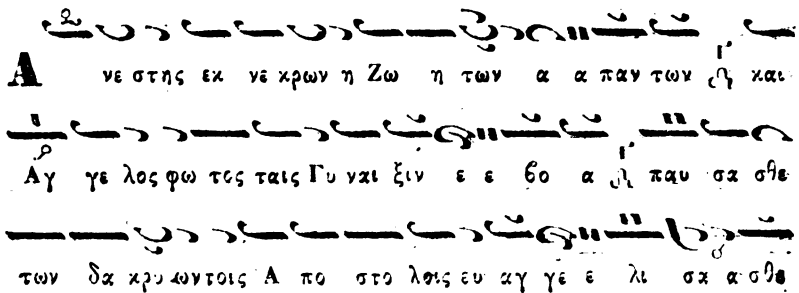 Α νε στης εκ νε κρων η Ζω η των α α παν των και
Αγ γε λος φω τος ταις Γυ ναι ξιν ε ε βο α παυ σα σθε
των δα κρυ ων τοις Α πο στο λοις ευ αγ γε ε λι σα α σθε